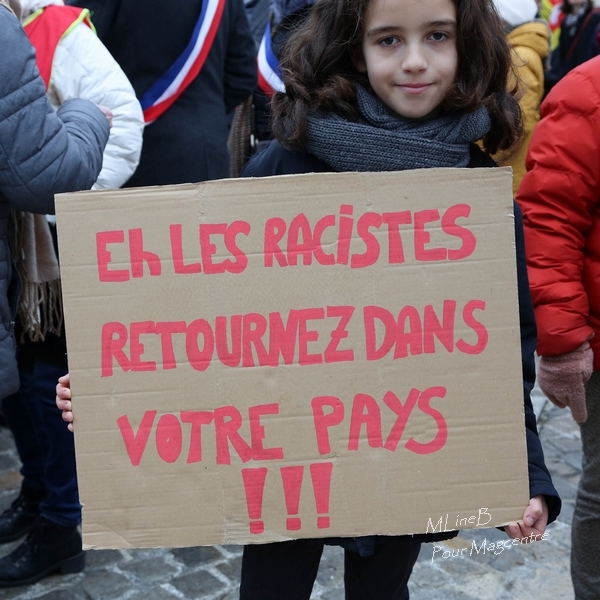 Eh LES RACiSTES
RETOURNEZ DANS
VOTRE PAYS
!!!
MLineB
Pour Magcentre